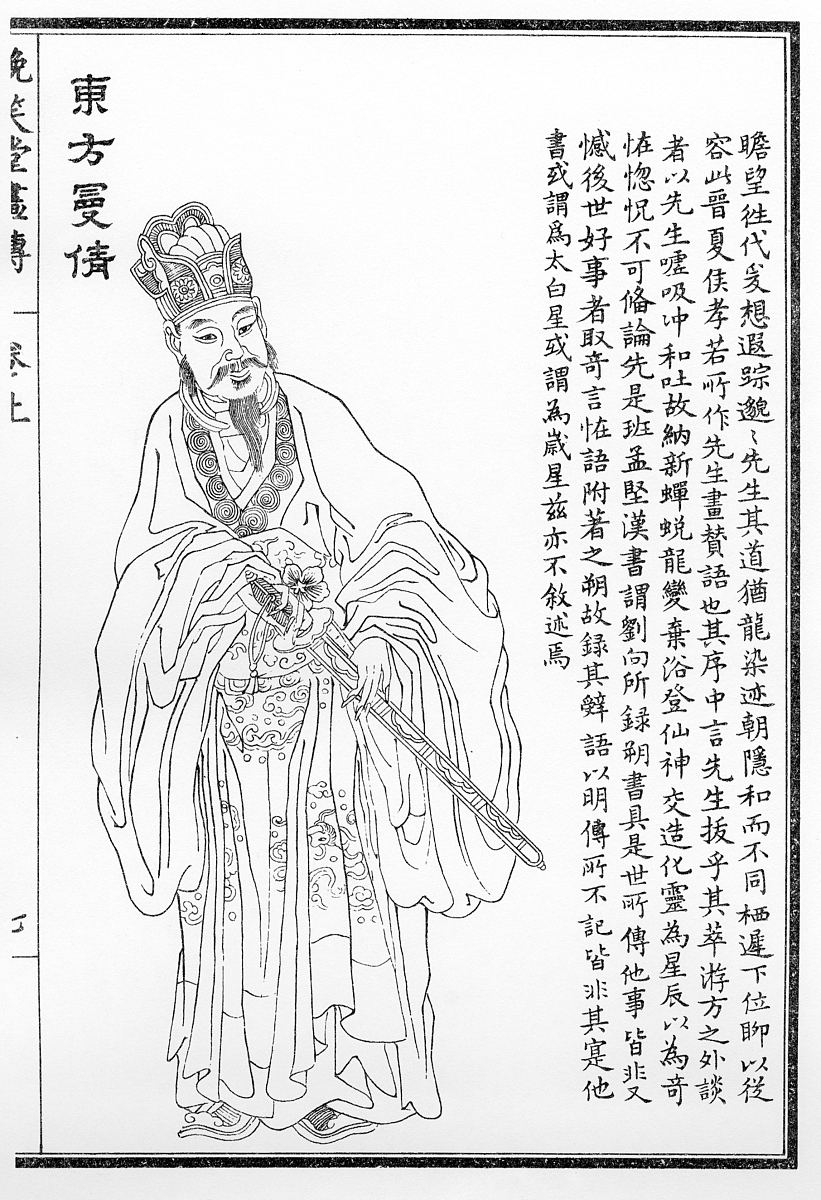 瞻望徃代爰想遐踪邈〻先生其道猶龍染迹朝隱和而不同栖遲下位聊以從
容此晉夏侯孝若所作先生畫贊語也其序中言先生拔乎其萃游方之外談
者以先生噓吸冲和吐故納新蟬蛻龍變棄俗登仙神交造化靈為星辰以為奇
恠惚怳不可偹論先是班孟堅漢書謂劉向所録朔書具是世所傳他事皆非又
憾後世好事者取奇言恠語附著之朔故録其辤語以明傳所不記皆非其寔他
書或謂爲太白星或謂為歲星茲亦不敘述焉
東方曼倩
晚笑堂畫傳
卷上